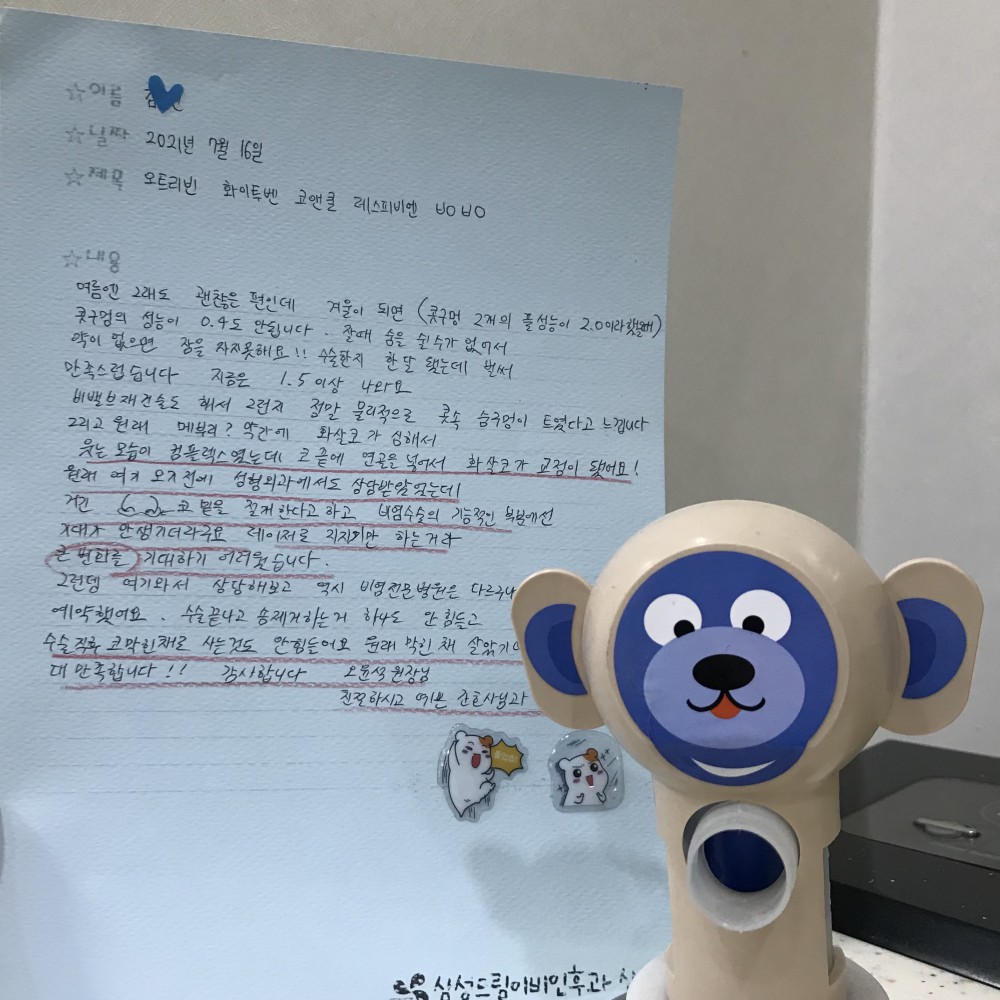 ☆이름 김
☆날짜 2021년 7월 16일
☆제목 오트리빈 화이투벤 코앤쿨 레스피비엔 ㅂㅇㅂㅇ
☆내용
여름엔 그래도 괜찮은 편인데 겨울이 되면 (콧구멍 2개의 풀성능이 2.0이라했을때)
콧구멍의 성능이 0.4도 안됩니다. 잘때 숨을 쉴수가 없어서
약이 없으면 잠을 자지못해요!! 수술한지 한달 됐는데 벌써
만족스럽습니다 지금은 1.5이상 나와요
비밸브재건술도 해서 그런지 정말 물리적으로 콧속 숨구멍이 트였다고 느낍니다
그리고 원래 메부리? 약간에 화살코가 심해서
웃는 모습이 컴플렉스였는데 코 끝에 연골을 넣어서 화살코가 교정이 됐어요!
원래 여기 오기전에 성형외과에서도 상담받았었는데
거긴 코 밑을 절개한다고 하고 비염수술의 기능적인 부분에선
기대가 안생기더라구요 레이저로 지지기만 하는거라
큰 변화를 기대하기 어려웠습니다.
그런뎀 여기와서 상담해보고 역시 비염전문병원은 다르구나
예약했어요. 수술끝나고 솜제거하는거 하나도 안힘들고
수술직후 코막힌채로 사는것도 안힘들어요 원래 막힌 채 살았기
대 만족합니다!! 감사합니다 오윤석 원장님
친절하시고 예쁜 간호사님과
삼성드림이비인후과